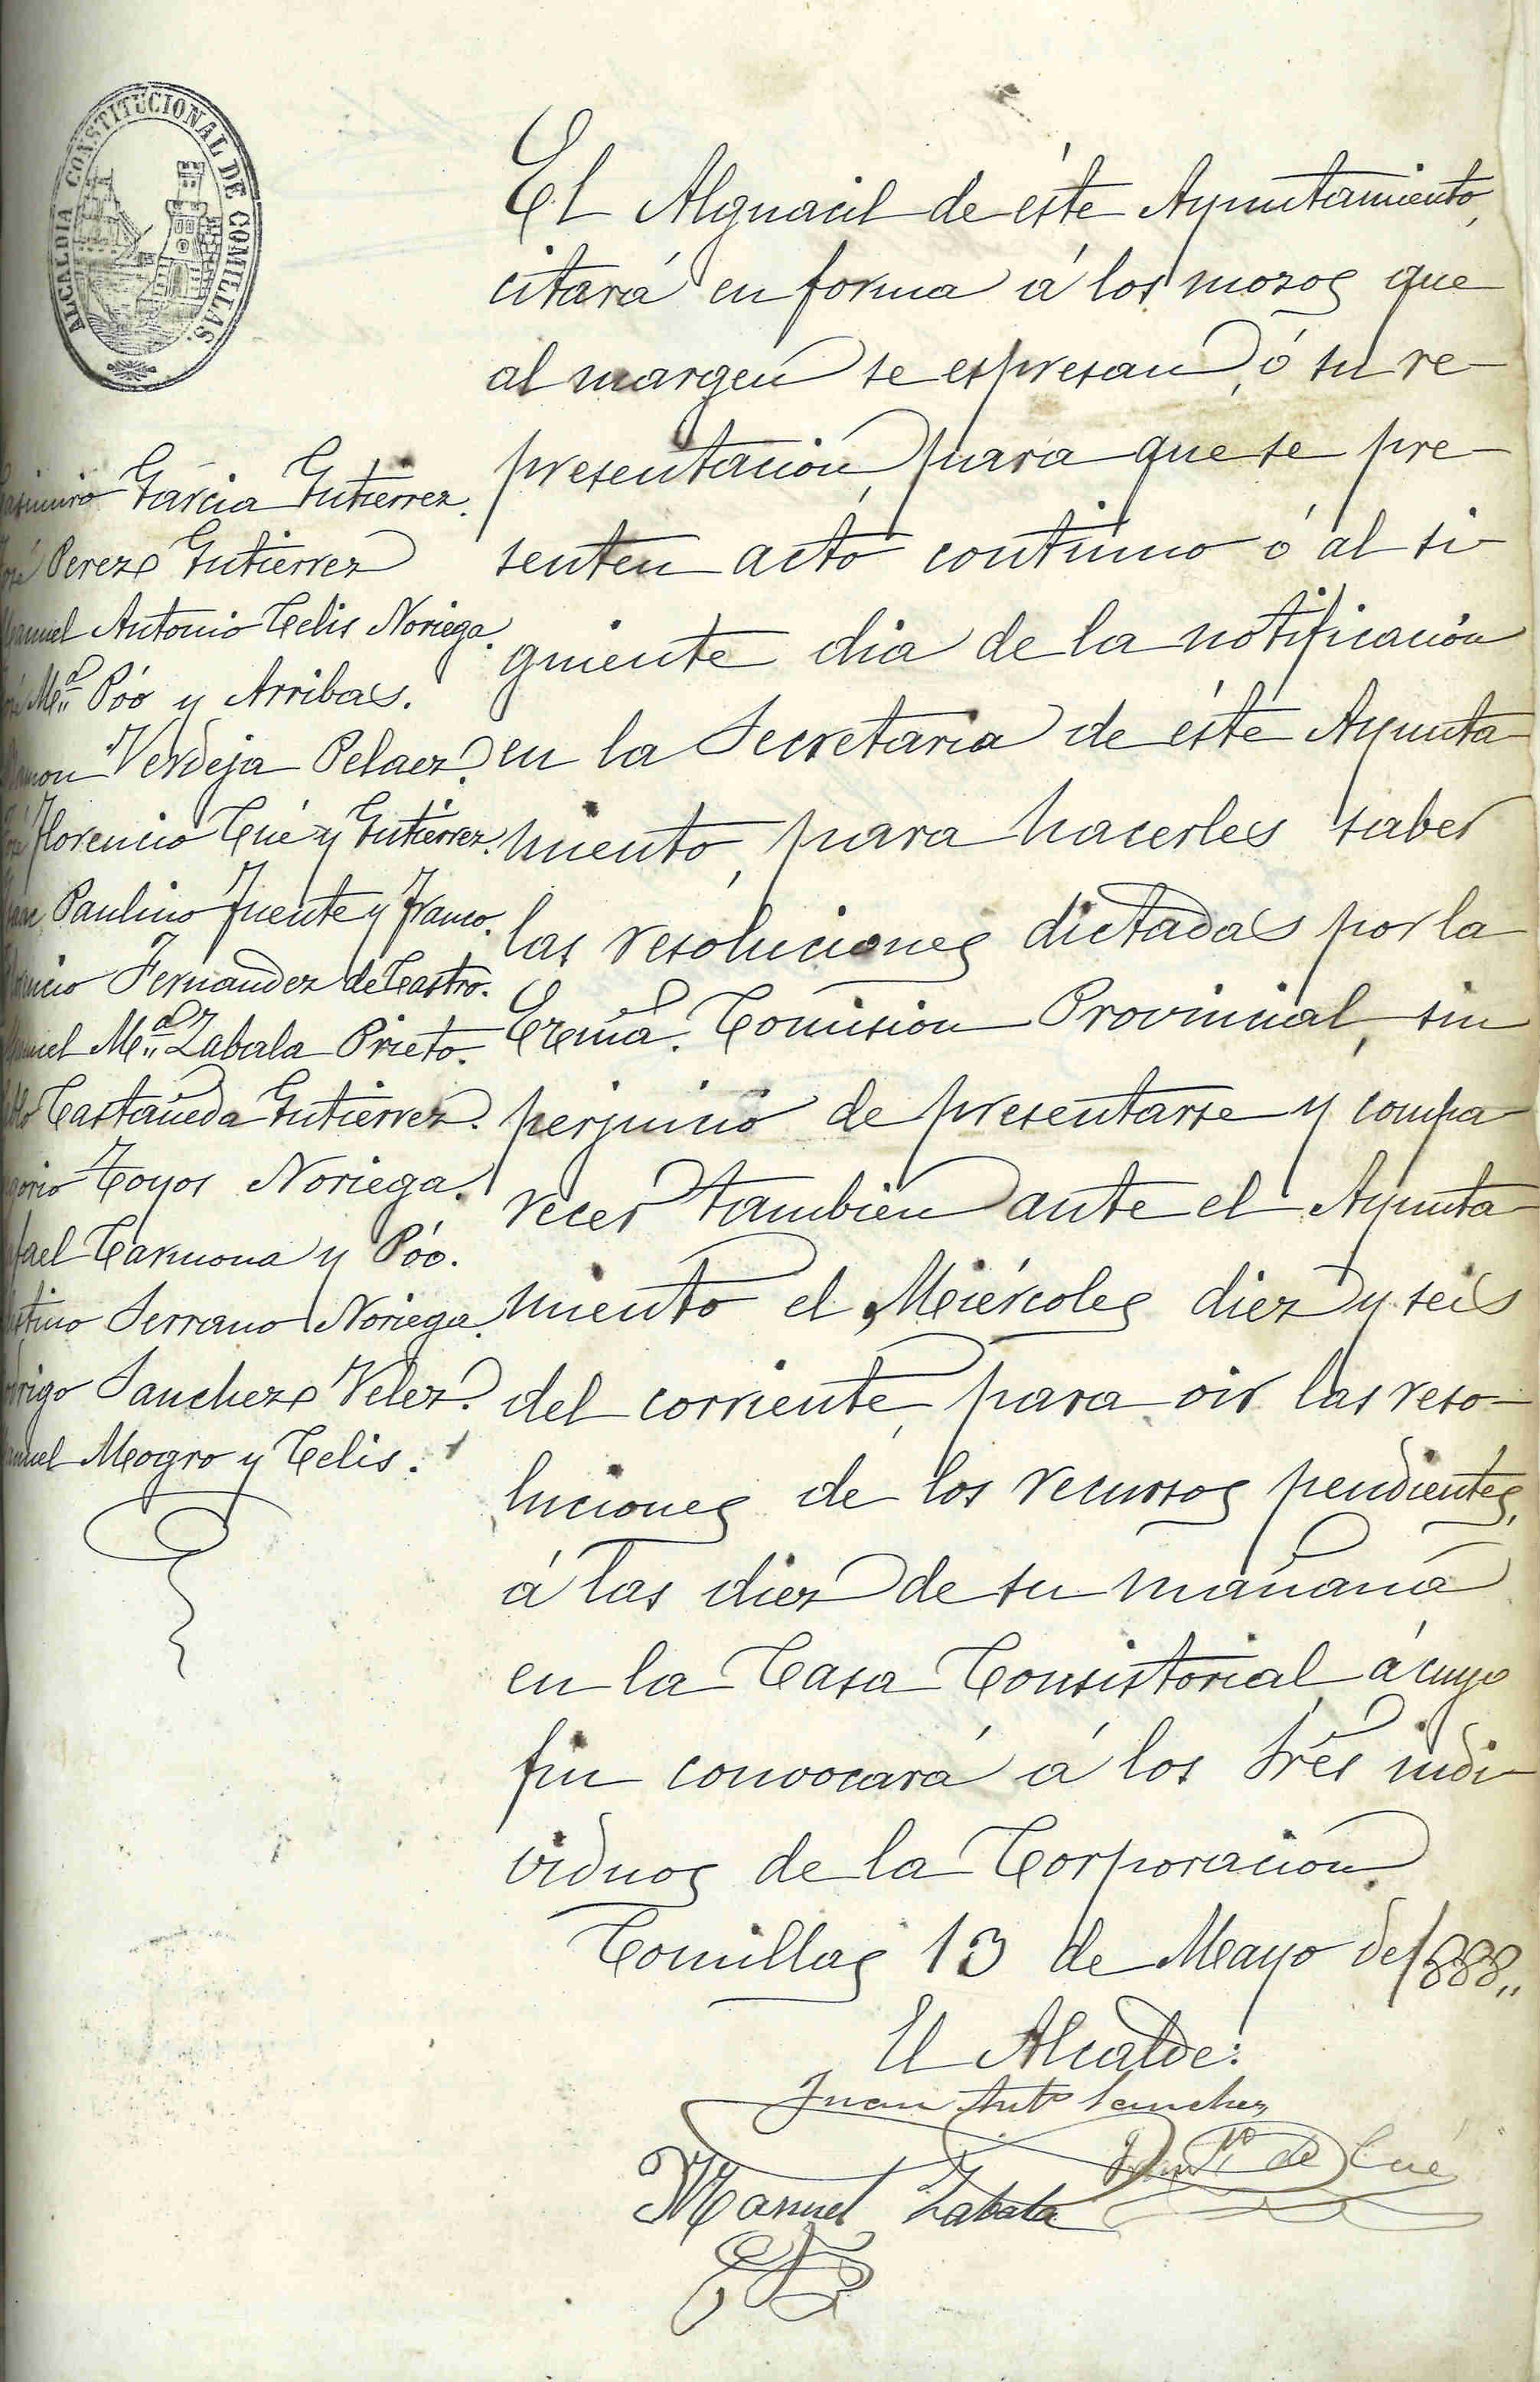 ALCALDIA CONSTITUCIONAL DE COMILLAS.
El Alguacil de éste Ayuntamiento,
citará en forma á los mozos que
al margen se espresan, ó su re-
presentación, para que se pre-
senten acto continuo ó al si-
guiente dia de la notificación
en la Secretaria de éste Ayunta-
miento, para hacerles saber
las resoluciones dictadas por la
Ecma. Comision Provincial, sin
perjuicio de presentarse y compa-
recer tambien ante el Ayunta-
miento el Miércoles diez y seis
del corriente, para oir las reso-
luciones de los recursos pendientes,
á las diez de su mañana
en la Casa Consistorial, á cuyo
fin convocará á los Sres indi-
viduos de la Corporacion.
Comillas 13 de Mayo de 1888.,
El Alcalde:
Juan Anto Sanchez
de Cué
Manuel Zabala
Casimiro Garcia Gutierrez.
José Perez Gutierrez
Manuel Antonio Celis Noriega.
José Ma Póo y Arribas.
Ramon Verdeja Pelaez.
José Florencio Cué y Gutierrez.
Paulino Fuente y Franco.
Fernandez de Castro.
Manuel Ma Zabala Prieto.
Pablo Castañeda Gutierrez.
gorio Toyos Noriega.
fael Carmona y Póo.
Serrano Noriega.
drigo Sanchez Velez.
Manuel Mogro y Celis.